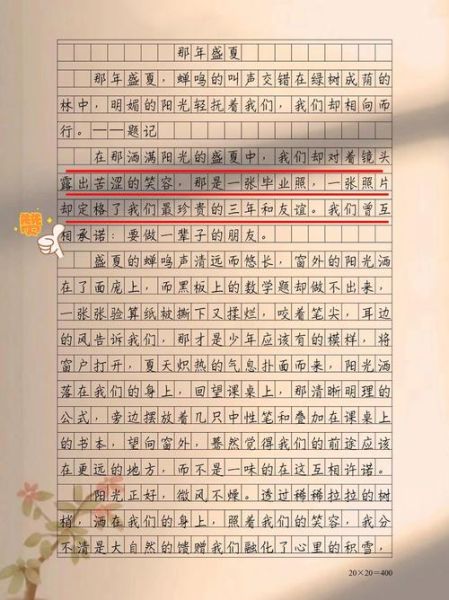 那年盛夏
那年盛夏,蝉鸣的叫声交错在绿树成荫的
林中,明媚的阳光轻托着我们,我们却相向而
行。——题记
在那洒满阳光的盛夏中,我们却对着镜头
露出苦涩的笑容,那是一张毕业照,一张照片
却定格了我们最珍贵的三年和友谊。我们曾互
相承诺:要做一辈子的朋友。
盛夏的蝉鸣声清远而悠长,窗外的阳光洒
在了面庞上,而黑板上的数学题却做不出来,
一张张验算纸被撕下又揉烂,咬着笔尖,耳边
的风告诉我们,那才是少年应该有的模样,将
窗户打开,夏天炽热的气息扑面而来,阳光洒
落在我们的身上,回望课桌上,那清晰明理的
公式,旁边摆放着几只中性笔和叠加在课桌上
的书本,望向窗外,蓦然觉得我们的前途应该
在更远的地方,而不是一味的在这互相许诺。
阳光正好,微风不燥。透过稀稀拉拉的树
梢,洒在我们的身上,照着我们的笑容,我分
不清是大自然的馈赠我们融化了心里的积雪,
20×20=400